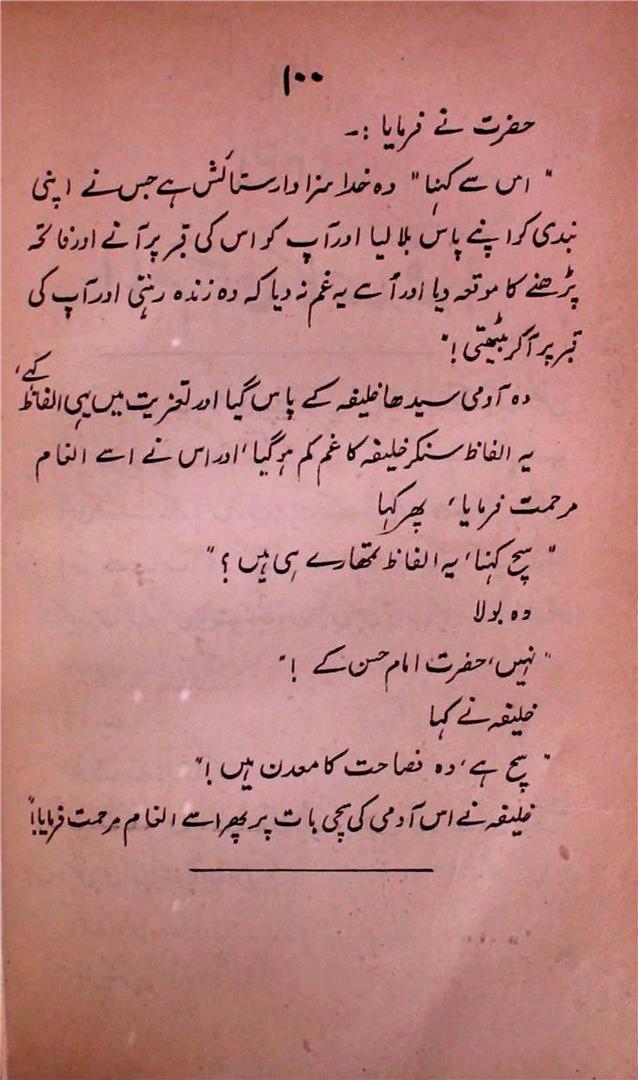 ۱۰۰
حضرت نے فرمایا :۔
" اس سے کہنا " وہ خدا سزاوار ستائش ہے جس نے اپنی
بندی کو اپنے پاس بلا لیا اور آپ کو اس کی قبر پر آنے اور فاتحہ
پڑھنے کا موقعہ دیا اور اُسے یہ غم نہ دیا کہ وہ زندہ رہتی اور آپ کی
قبر پر آکر بیٹھتی !"
وہ آدمی سیدھا خلیفہ کے پاس گیا اور تعزیت میں یہی الفاظ کہے،
یہ الفاظ سنکر خلیفہ کا غم کم ہو گیا، اور اس نے اسے انعام
مرحمت فرمایا، پھر کہا
" سچ کہنا، یہ الفاظ تمھارے ہی ہیں ؟ "
وہ بولا
" نہیں، حضرت امام حسن کے ! "
خلیفہ نے کہا
" سچ ہے، وہ فصاحت کا معدن ہیں !"
خلیفہ نے اس آدمی کی سچی بات پر پھر اسے انعام مرحمت فرمایا!"